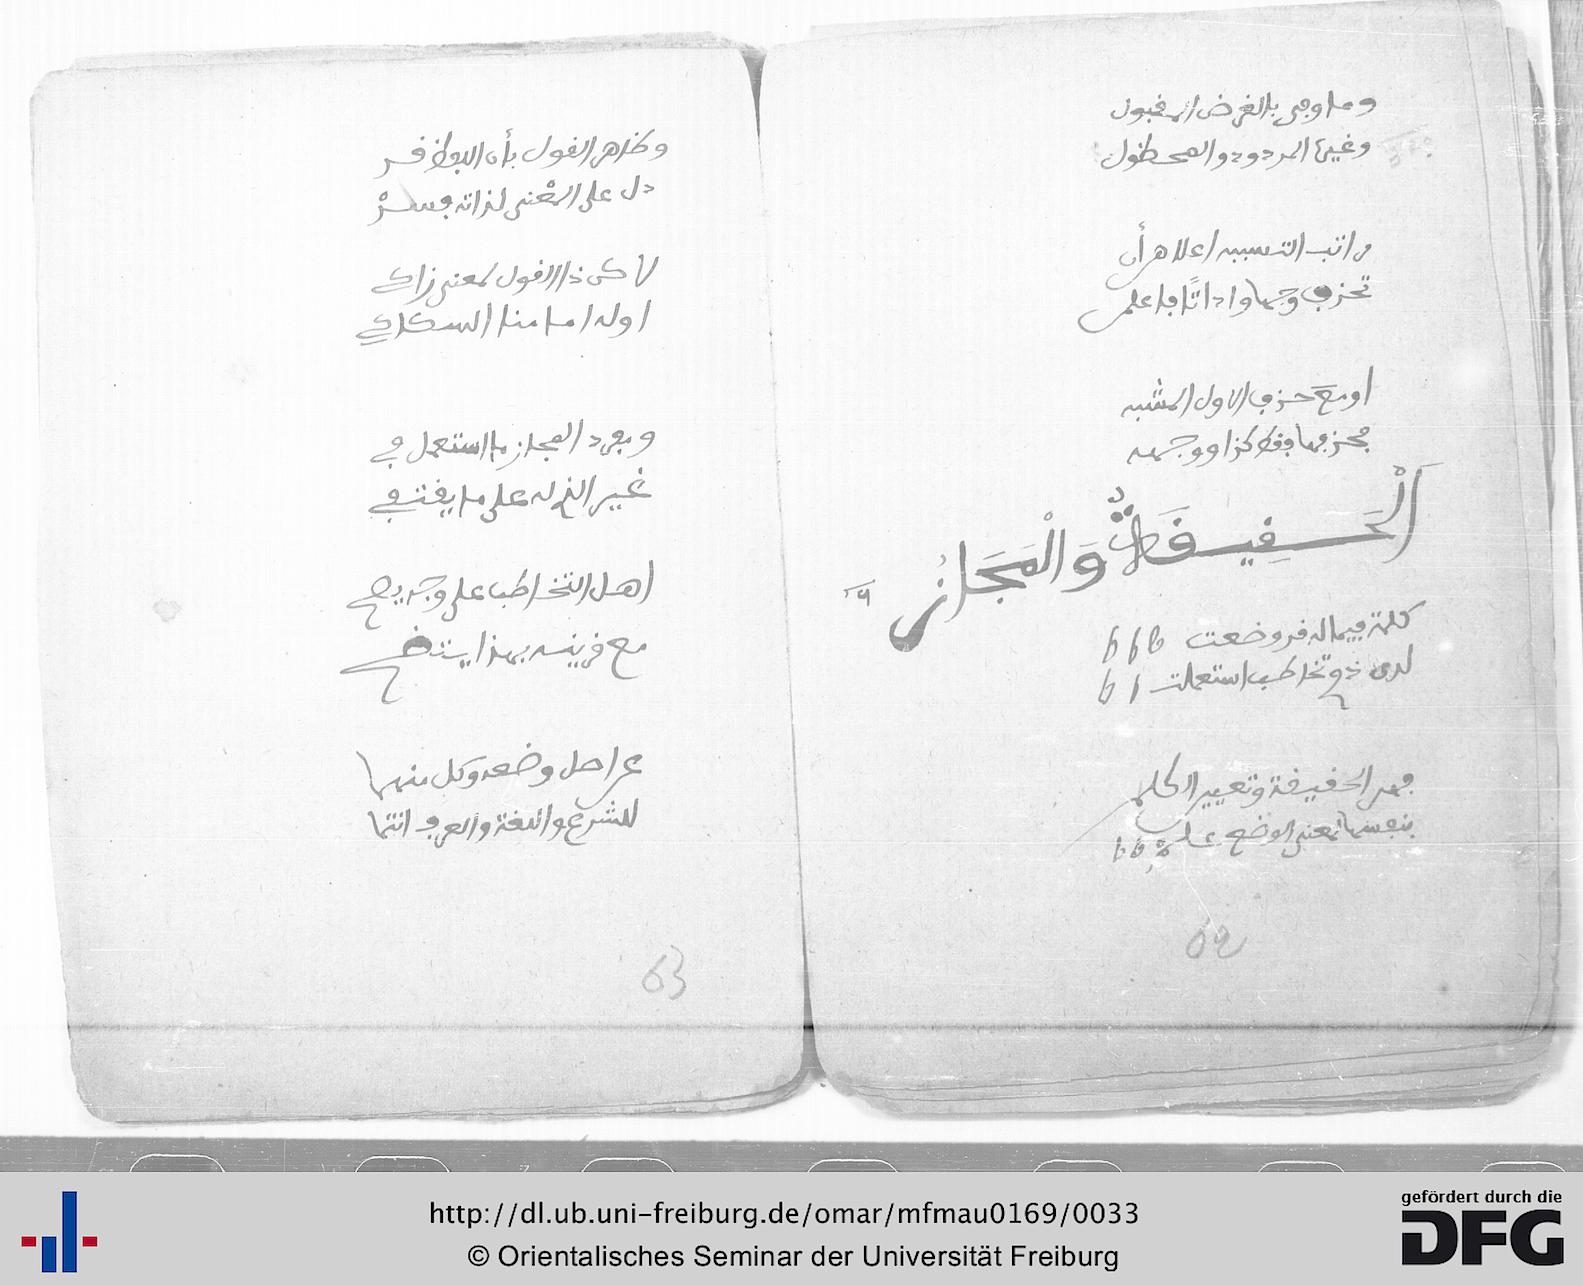 وما وفى بالغرض المقبول
وغيرها المردود والمحظول
مراتب التشبيه اعلاهر أن
تحذف وجها واداتًا فاعلمن
او مع حذف الاول المشبه
فحذفها فقط كذا ووجهه
اَلْحَقِيقَةُ وَالْمَجَازُ
كلمة فيما له قد وضعت
لدى ذو تخاطب استعملت
فهى الحقيقة وتعيين الكلم
بنفسها لمعنى الوضع علم
62
وظاهر القول بأن اللفظ قد
دل على المعْنى لذاته فسدْ
لاكن ذا القول لمعنى زاكي
اوله امامنا السكاكي
ومفرد المجاز ما استعمل في
غير الذ له على ما يقتفي
اهل التخاطب على وجه يصح
مع قرينه بهذا يتضح
عن اصل وضعه وكل منهما
للشرع واللغة والعرف انتما
63
http://dl.ub.uni-freiburg.de/omar/mfmau0169/0033
© Orientalisches Seminar der Universität Freiburg
gefördert durch die
DFG